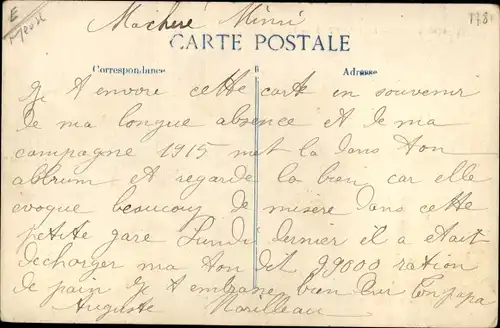 Macheré Mimi
CARTE POSTALE
Correspondance
Adresse
Je t envoie cette carte en souvenir
de ma longue absence et de ma
campagne 1915 met la dans ton
albrum et regarde la bien car elle
evoque beaucoup de misere dans cette
petite gare Lundi dernier il a etait
decharger ma ton dit 99000 ration
de pain Je t embrasse bien fort ton papa
Auguste